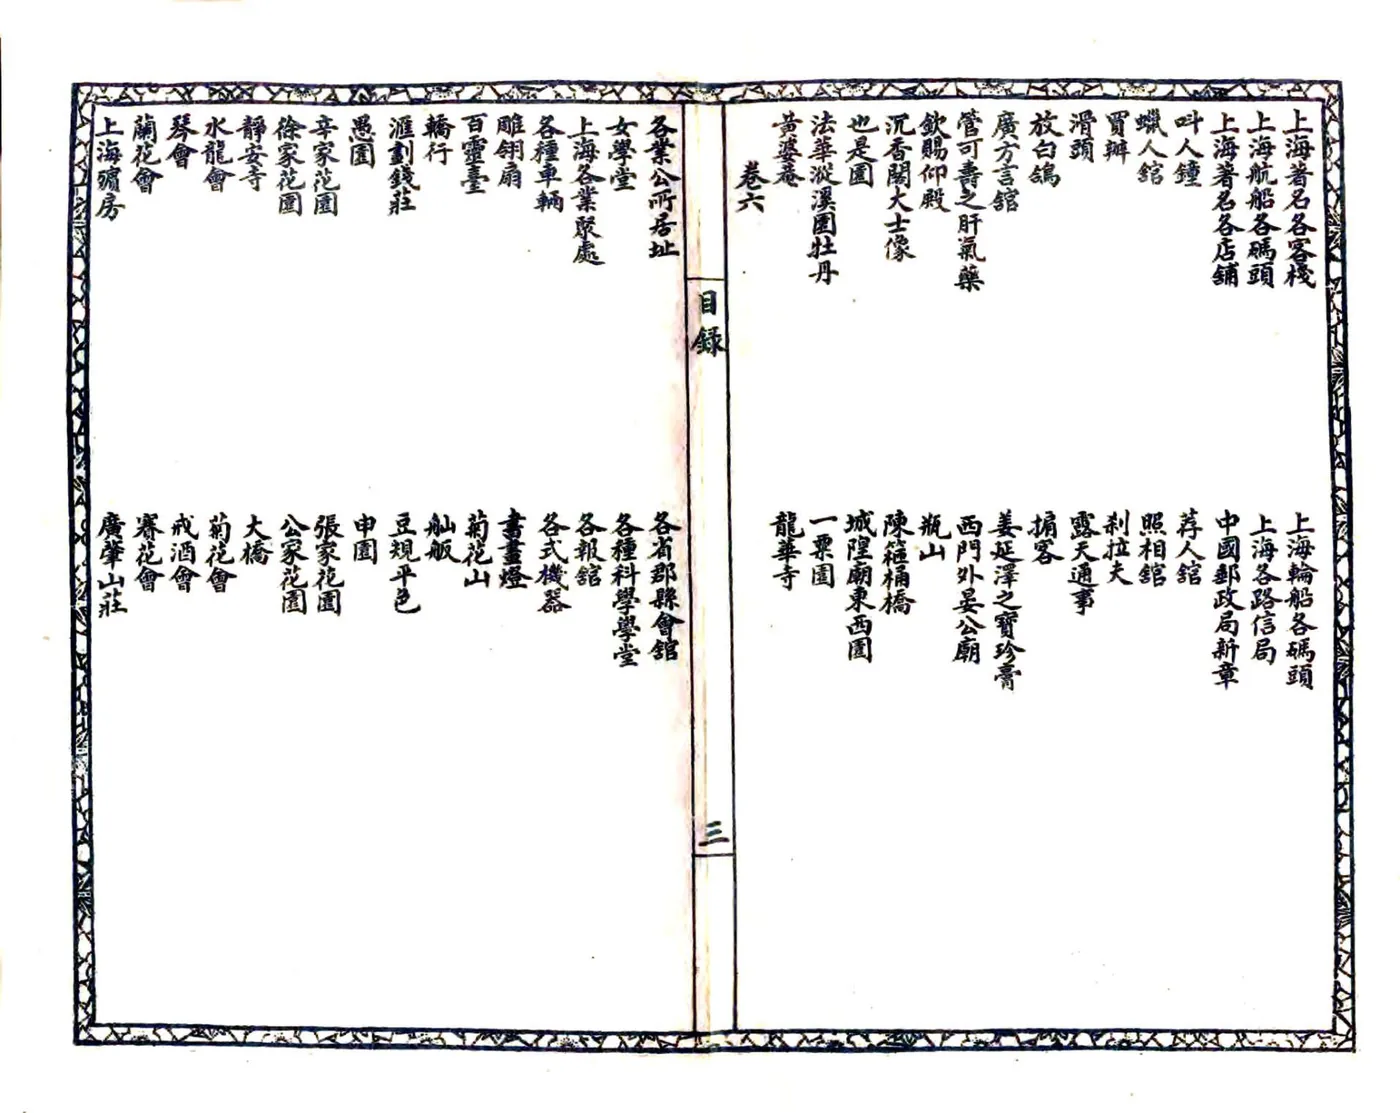 上海著名各客棧
上海輪船各碼頭
上海航船各碼頭
上海各路信局
上海著名各店舖
中國郵政局新章
叫人鐘
荐人舘
蠟人舘
照相舘
買辦
刹拉夫
滑頭
露天通事
放白鴿
掮客
廣方言舘
姜延澤之寶珍膏
管可壽之肝氣藥
西門外晏公廟
欽賜仰殿
瓶山
沉香閣大士像
陳箍桶橋
也是園
城隍廟東西園
法華漎溪園牡丹
一粟園
黃婆菴
龍華寺
卷六
目録
三
各業公所居址
各省郡縣會舘
女學堂
各種科學學堂
上海各業聚處
各報舘
各種車輛
各式機器
雕翎扇
書畫燈
百靈臺
菊花山
轎行
舢舨
滙劃錢莊
豆規平色
愚園
申園
辛家花園
張家花園
徐家花園
公家花園
靜安寺
大橋
水龍會
菊花會
琴會
戒酒會
蘭花會
賽花會
上海殯房
廣肇山莊